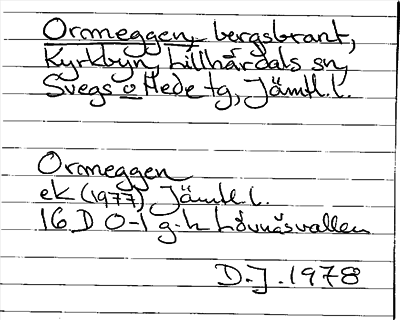 Ormeggen, bergsbrant,
Kyrkbyn, Lillhärdals sn,
Svegs o Hede tg, Jämtl. l.
Ormeggen
ek (1977) Jämtl. l.
16 D 0-1 g-h Lövnäsvallen
D.J. 1978